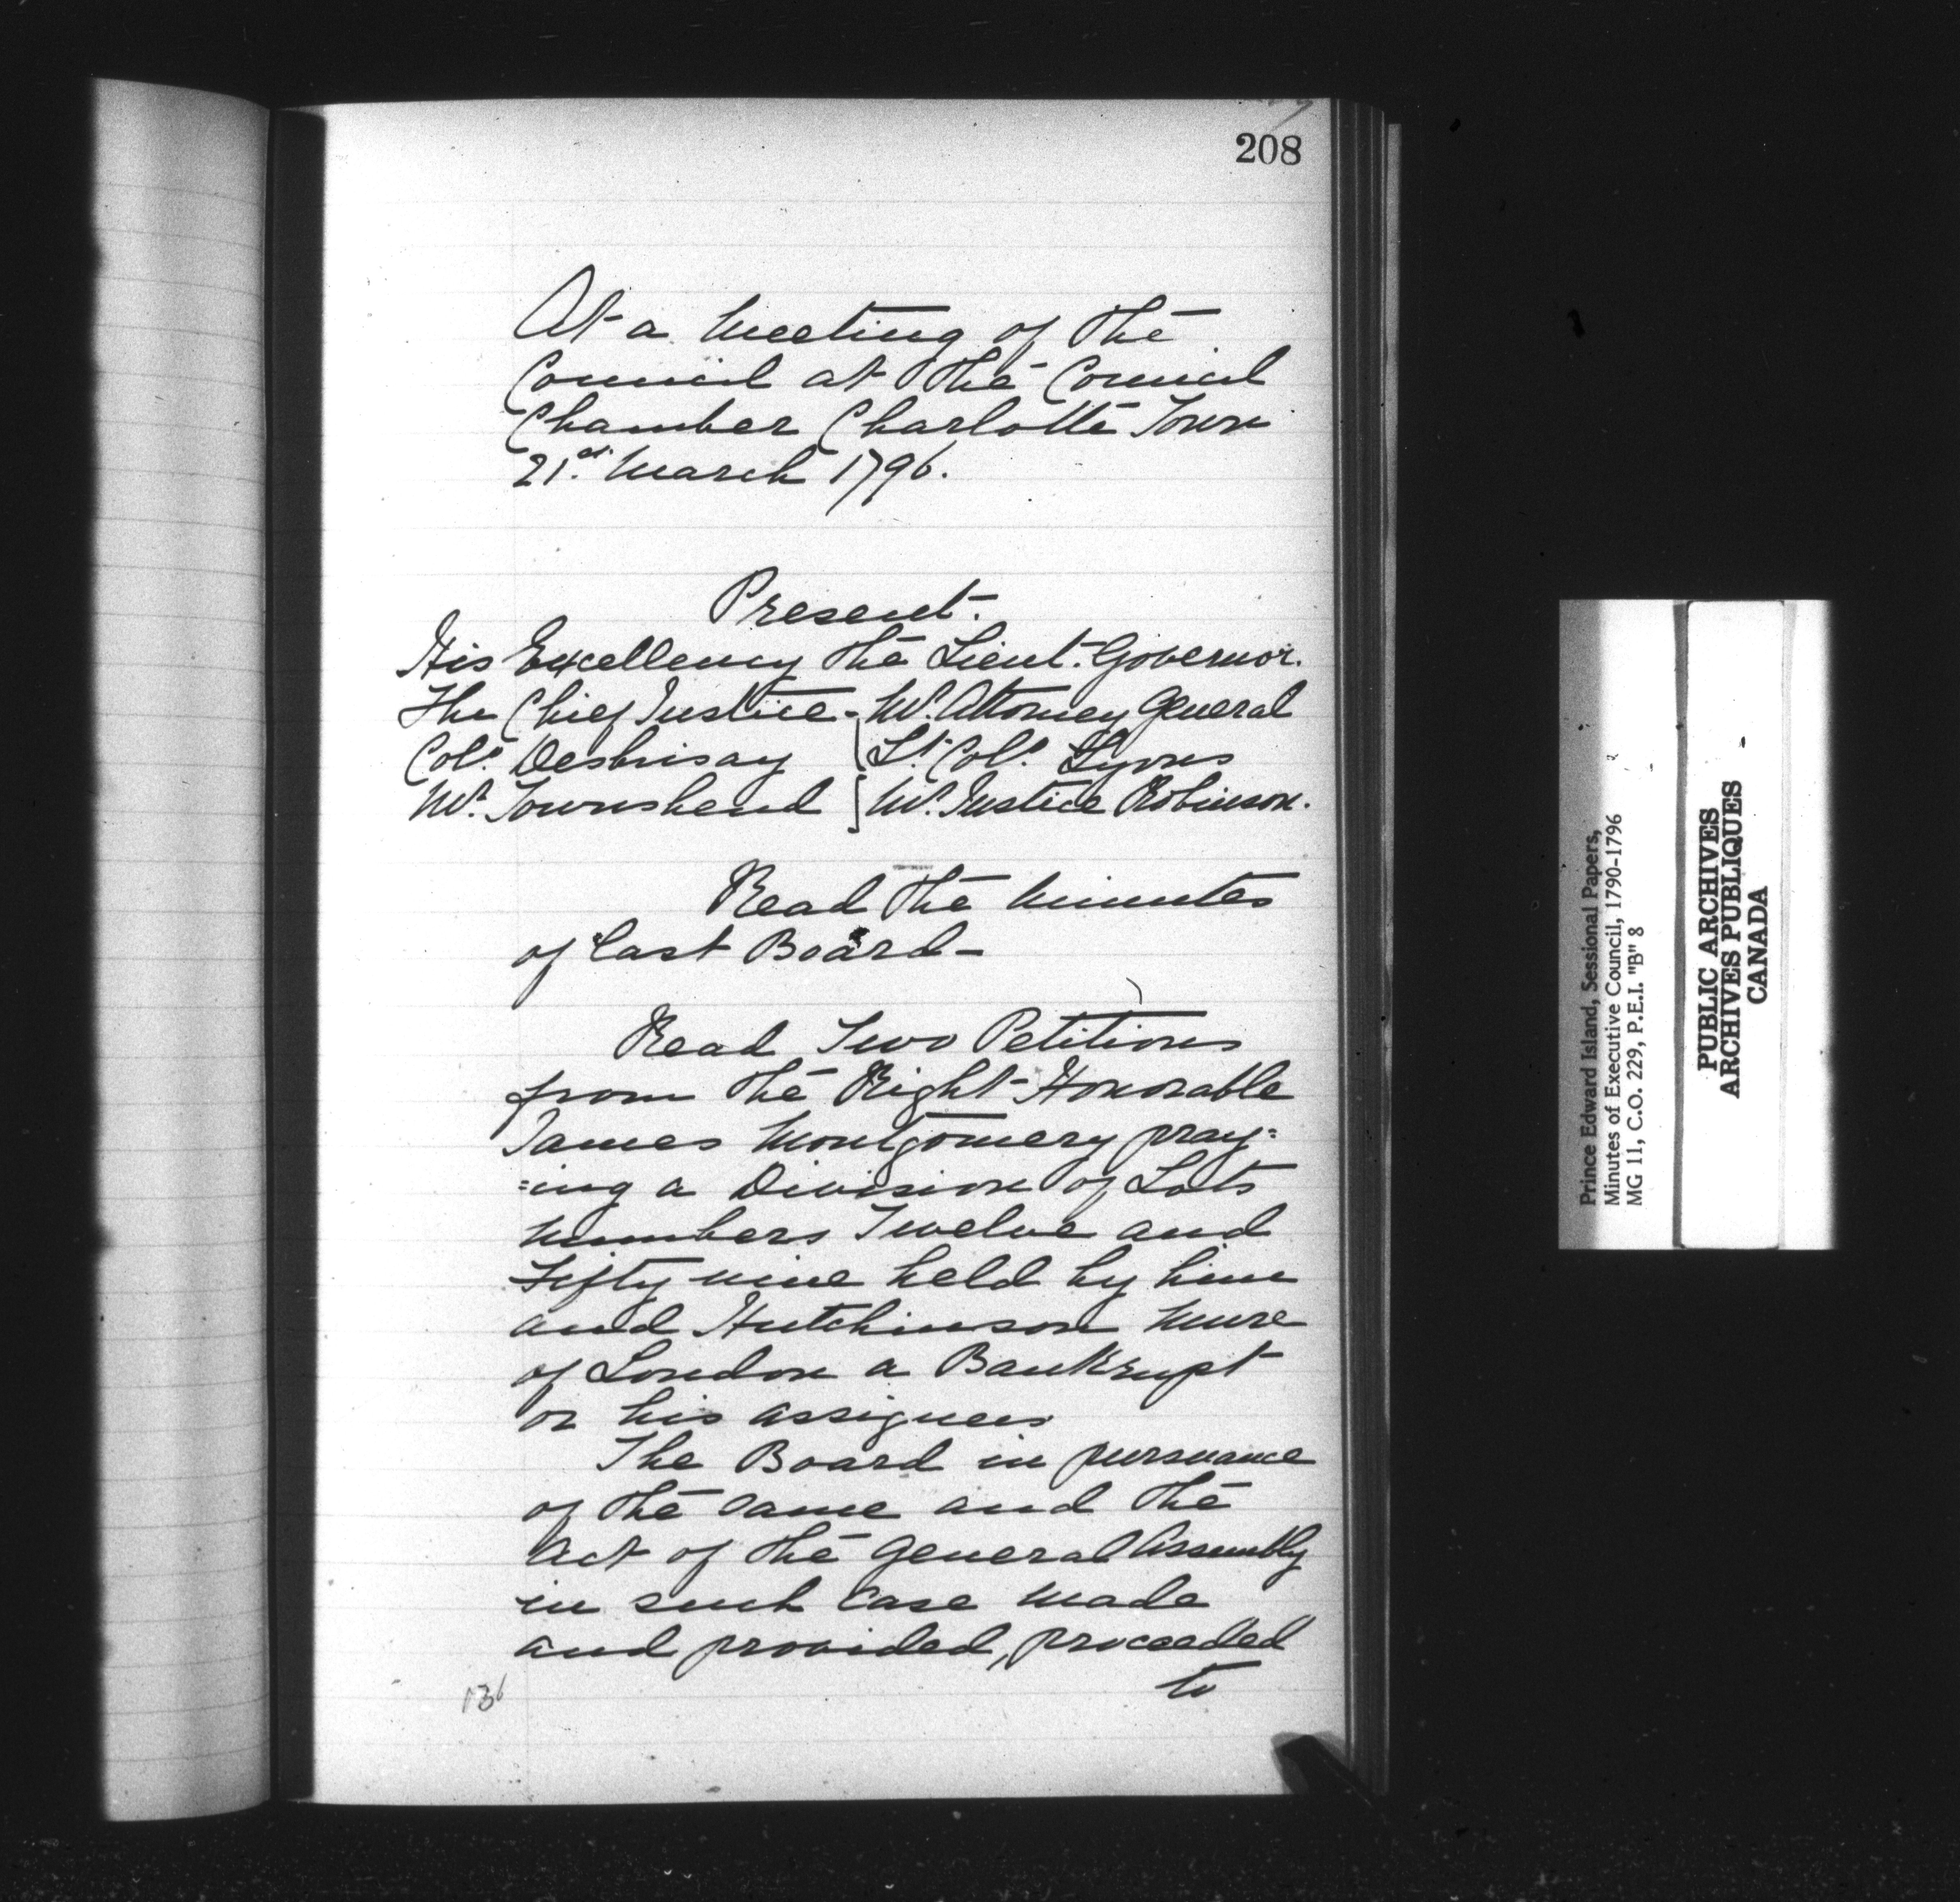 208
At a Meeting of the
Council at the Council
Chamber Charlotte Town
21st. March 1796.
Present.
His Excellency the Lieut. Governor.
The Chief Justice - Mr. Attorney General
Coll. Desbrisay Lt. Coll. Lyons
Mr. Townshend Mr. Justice Robinson.
Read the Minutes
of last Board -
Read Two Petitions
from the Right Honorable
James Montgomery pray=
=ing a Division of Lots
Numbers Twelve and
Fifty nine held by him
and Hutchinson Mure
of London a Bankrupt
or his assignees
The Board in pursuance
of the same and the
Act of the General Assembly
in such case made
and provided, proceeded
to
136
Prince Edward Island, Sessional Papers,
Minutes of Executive Council, 1790-1796
MG 11, C.O. 229, P.E.I. "B" 8
PUBLIC ARCHIVES
ARCHIVES PUBLIQUES
CANADA